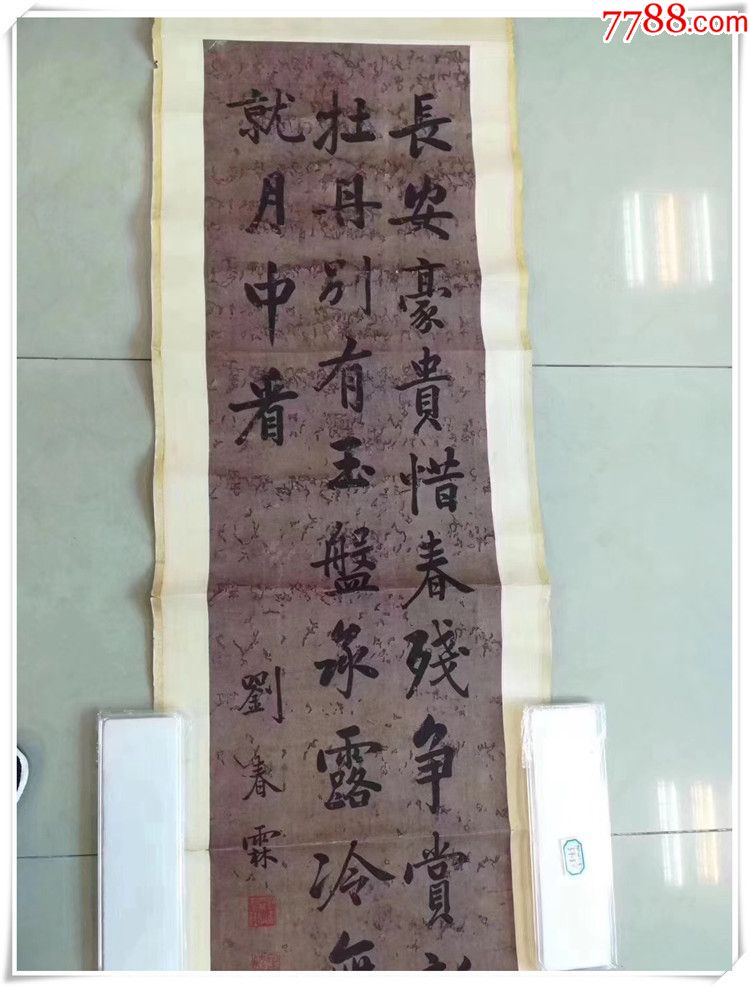 7788.com
長安豪貴惜春殘争賞
牡丹别有玉盤承露冷無
就月中看
劉春霖